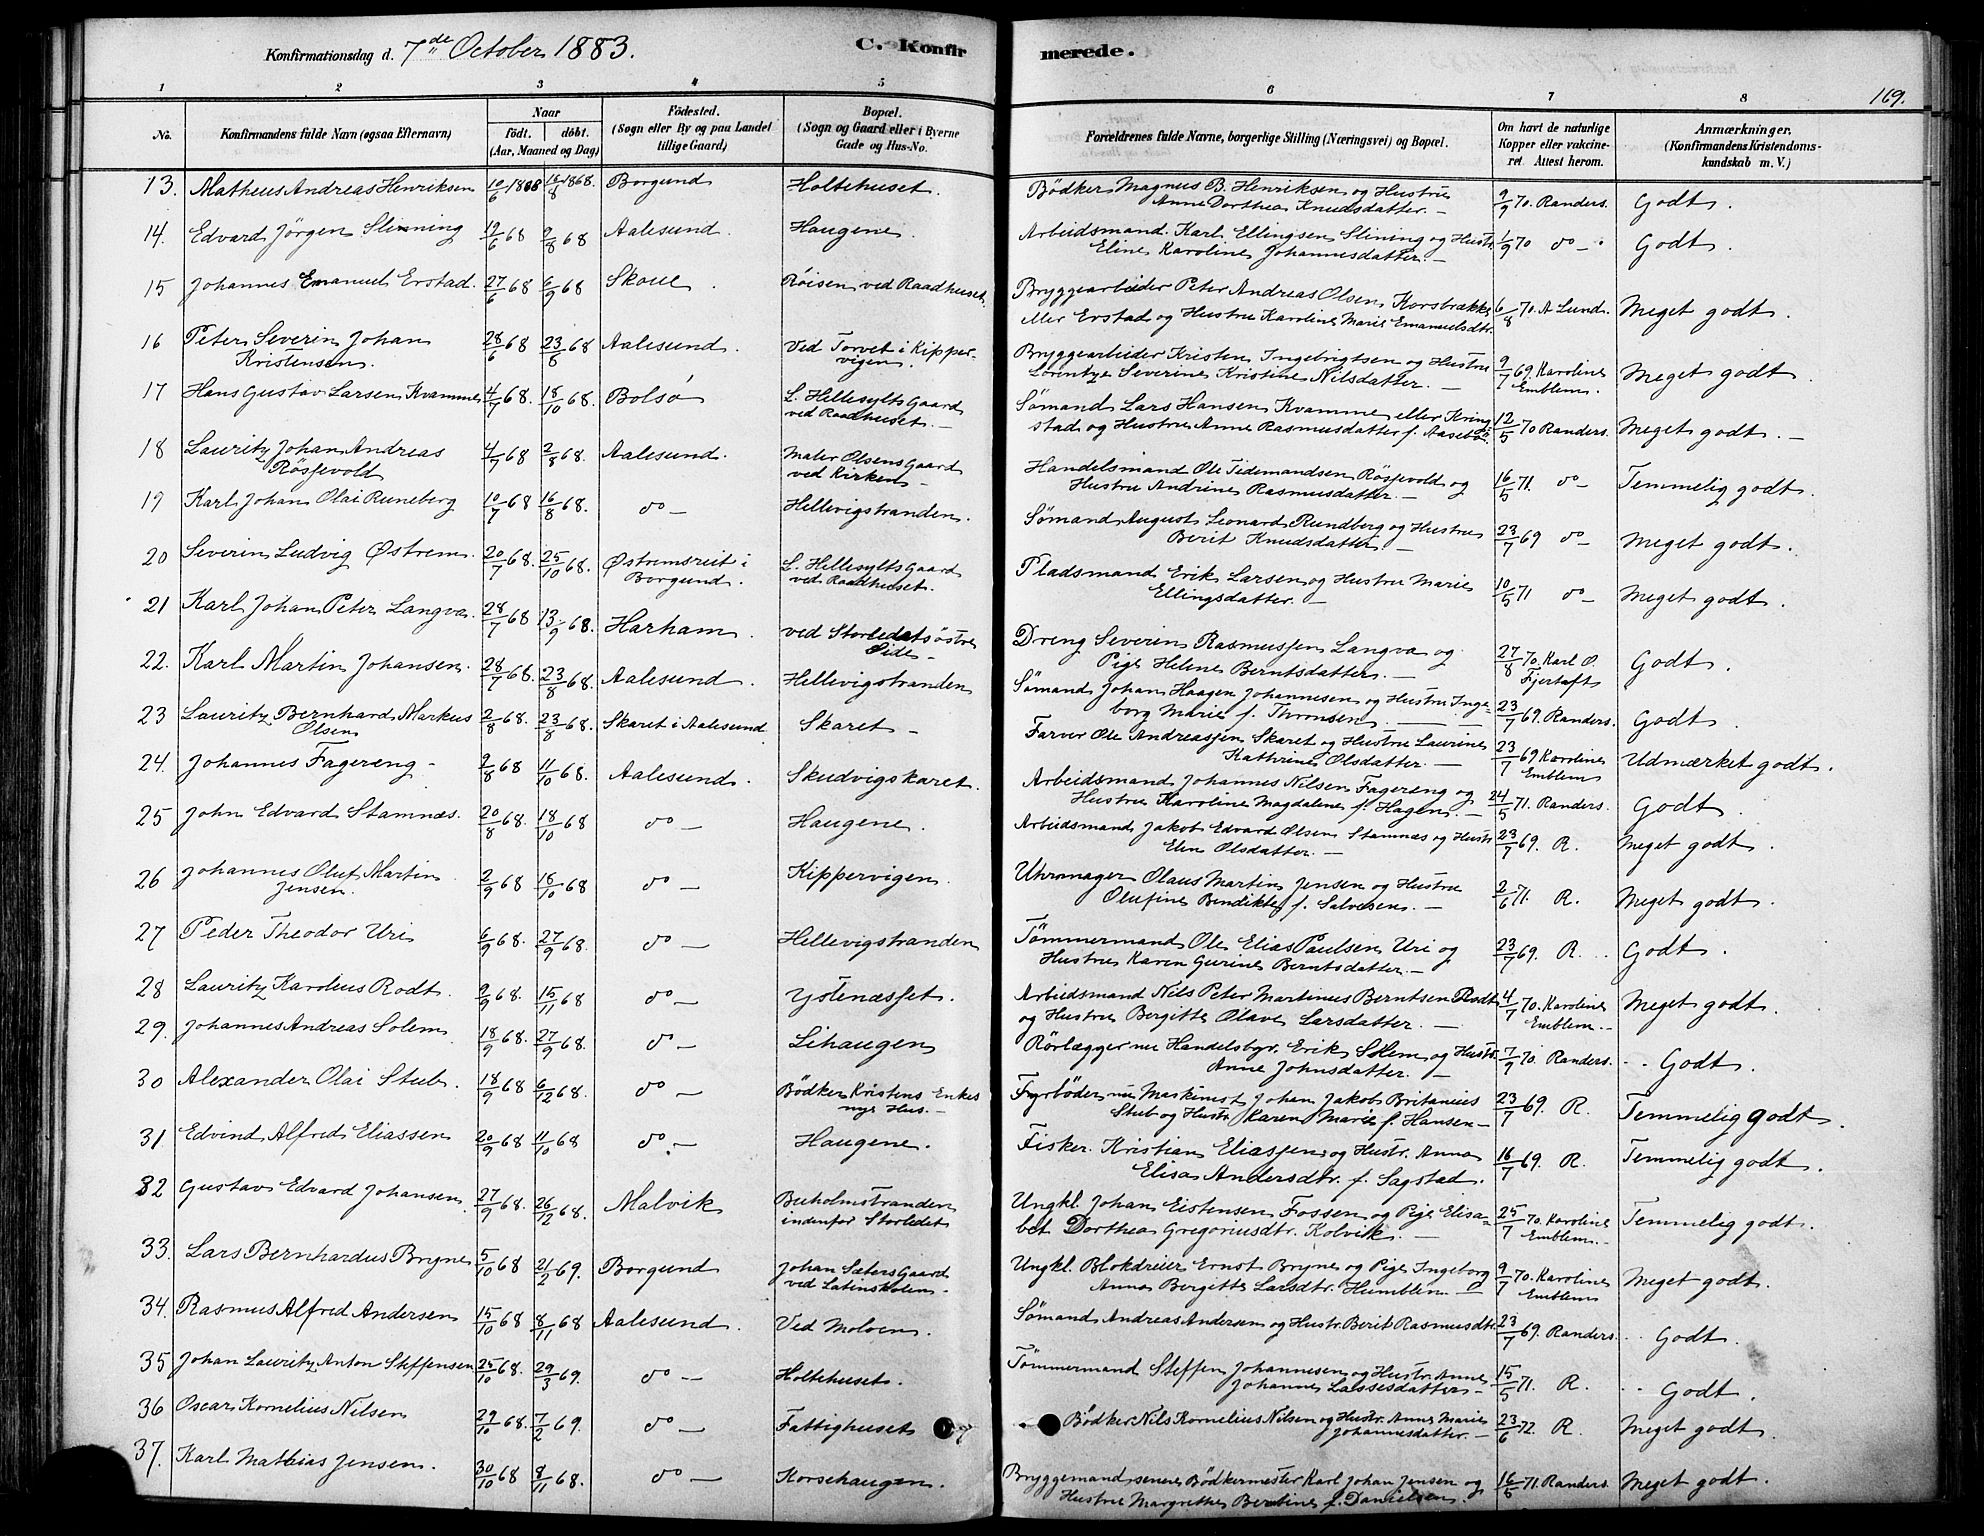 Konfirmationsdag d. 7de October 1883.
C. Konfirmerede.
169.
1 2 3 4 5 6 7 8
No.
Konfirmandens fulde Navn (ogsaa Efternavn)
Naar
født. døbt.
(Aar, Maaned og Dag)
Fødested.
(Sogn eller By og paa Landet
tillige Gaard)
Bopæl.
(Sogn og Gaard eller i Byerne
Gade og Hus-No.
Forældrenes fulde Navne, borgerlige Stilling (Næringsvei) og Bopæl.
Om havt de naturlige
Kopper eller vakcine-
ret. Attest herom.
Anmærkninger.
(Konfirmandens Kristendoms-
kundskab m. V.)
13. Matheus Andreas Henriksen 10/6 1868 16/8 1868. Borgund Holtehuset. Bødker Magnus B. Henriksen og Hustru
Anne Dorthea Knudsdatter. — 9/9 70. Randers. Godt.
14. Edvard Jørgen Slinning 19/6 68 9/8 68 Aalesund. Haugene. Arbeidsmand Karl Ellingsen Slining og Hustr.
Eline Karoline Johannesdatter. — 1/9 70 do — Godt.
15 Johannes Emanuel Erstad. 27/6 68 6/9 68 Skoue. Røisen ved Raadhuset. Bryggearbeider Peter Andreas Olsen Korsbrække
eller Erstad og Hustru Karoline Marie Emanuelsdtr. 6/8 70. A Lund. Meget godt.
16 Peter Severin Johan
Kristensen. 28/6 68 23/8 68 Aalesund. Ved Torvet i Kipper-
vigen. Bryggearbeider Kristen Ingebrigtsen og Hustru
Lorentze Severine Kristine Nilsdatter. — 9/7 69. Karoline
Emblem. Meget godt.
17 Hans Gustav Larsen Kvamme 4/7 68. 18/10 68. Bolsø L. Hellesylts Gaard
ved Raadhuset. — Sømand Lars Hansen Kvamme eller Kring-
stad og Hustru Anne Rasmusdatter f. Aasebø. 12/5 70 Randers. Meget godt. —
18 Lauritz Johan Andreas
Røsjevold 4/7 68 2/8 68. Aalesund. Maler Olsens Gaard
ved Kirken — Handelsmand Ole Tidemandsen Røsjevold og
Hustru Andrine Rasmusdatter. — 16/5 71. do — Temmelig godt.
19 Karl Johan Olai Runeberg 10/7 68 16/8 68. do — Hellevigstranden. Sømand August Leonard Rundberg og Hustru
Berit Knudsdatter. — 23/7 69 do — Meget godt.
20 Severin Ludvig Østrem. 20/7 68. 25/10 68. Østremsreit i
Borgund. L. Hellesylts Gaard
ved Raadhuset. Pladsmand Erik Larsen og Hustru Marie
Ellingsdatter. — 10/5 71 do — Meget godt.
21 Karl Johan Peter Langva. 28/7 68 13/9 68. Harham. ved Storledets østre
Side — Dreng Severin Rasmussen Langva og
Pige Heline Berntsdatter. — 27/8 70. Karl O.
Fjertoft Godt.
22. Karl Martin Johansen. 28/7 68. 23/8 68. Aalesund. Hellevigstranden Sømand Johan Haagen Johannesen og Hustru Inge-
borg Marie f. Thronsen. — 23/7 69. Randers. Godt.
23 Lauritz Bernhard Markus
Olsen 2/8 68. 23/8 68. Skaret i Aalesund Skaret — Farver Ole Andreassen Skaret og Hustru Laurine
Kathrine Olsdatter. — 23/7 69 Karoline
Emblem Udmærket godt.
24. Johannes Fagereng — 2/8 68 11/10 68. Aalesund. Skudvigskaret. Arbeidsmand Johannes Nilsen Fagereng og
Hustru Karoline Magdalene f. Hagen. — 24/5 71. Randers. Godt.
25 John Edvard Stamnæs. 20/8 68. 18/10 68 do — Haugene. Arbeidsmand Jakob Edvard Olsen Stamnæs og Hustr
Elen Olsdatter. — 23/7 69. R. Meget godt.
26 Johannes Oluf Martin
Jensen. 2/9 68 18/10 68 do — Kippervigen. Uhrmager Olaus Martin Jensen og Hustru
Olufine Bendikte f. Salvesen. — 2/6 71. R. Meget godt.
27 Peder Theodor Uri 6/9 68. 27/9 68. do — Hellevigstranden Tømmermand Ole Elias Paulsen Uri og
Hustru Karen Gurine Berntsdatter. — 23/7 69. R. Godt.
28 Lauritz Karolius Rodt. 9/9 68. 15/11 68 do — Ystenæsset. Arbeidsmand Nils Peter Martinus Berntsen Rodt
og Hustru Bergitte Olave Larsdatter. — 4/7 70. Karoline
Emblem. — Meget godt.
29. Johannes Andreas Solem 18/9 68. 27/9 68. do — Lihaugen Rørlægger nu Handelsbyr. Erik Solem og Hustr.
Anne Johnsdatter. — 7/9 70. Randers. Godt.
30 Alexander Olai Stub. 18/9 68 6/12 68. do — Bødker Kristens Enkes
nye Hus. — Fyrbøder nu Maskinist Johan Jakob Britanius
Stub og Hustr. Karen Marie f. Hansen — 23/7 69. R. Temmelig godt.
31 Edvind Alfred Eliassen 20/9 68 11/10 68 do — Haugene. Fisker. Kristian Eliassen og Hustr. Anna
Elisa Andersdtr. f. Sagstad. 16/7 69. R. Temmelig godt.
32 Gustav Edvard Johansen 27/9 68. 26/12 68. Malvik Buholmstranden
indenfor Storledet Ungkl. Johan Eistensen Fossen og Pige Elisa-
bet Dorthea Gregoriusdtr. Kolvik. — 25/7 70. Karoline
Emblem. — Temmelig godt.
33. Lars Bernhardus Brynes 5/10 68 21/2 69. Borgund Johan Sæters Gaard
ved Latinskolen. Ungkl. Blokdreier Ernst Brynes og Pige Ingeborg
Anna Bergitte Larsdtr. Humblen — 9/7 70. Karoline
Emblem Meget godt.
34. Rasmus Alfred Andersen 15/10 68 8/11 68 Aalesund. Ved Molven. Sømand Andreas Andersen og Hustr. Berit Rasmusdtr. 23/7 69. Randers. Godt.
35 Johan Lauritz Anton Steffensen 25/10 68. 29/3 69. do — Holtehuset. Tømmermand Steffen Johannesen og Hustr. Anne
Johanne Lassesdatter — 15/5 71. R. Godt.
36 Oscar Kornelius Nilsen 29/10 68. 7/2 69. do — Fattighuset Bødker Nils Kornelius Nilsen og Hustr. Anne Marie
Johannesdatter. — 23/6 72. R. Meget godt.
37. Karl Mathias Jensen. 30/10 68 8/11 68. do — Korsehaugen. Bryggemand senere Bødkermester Karl Johan Jensen og
Hustru Margrethe Bertine f. Danielsen. 16/5 71. Randers. Meget godt.